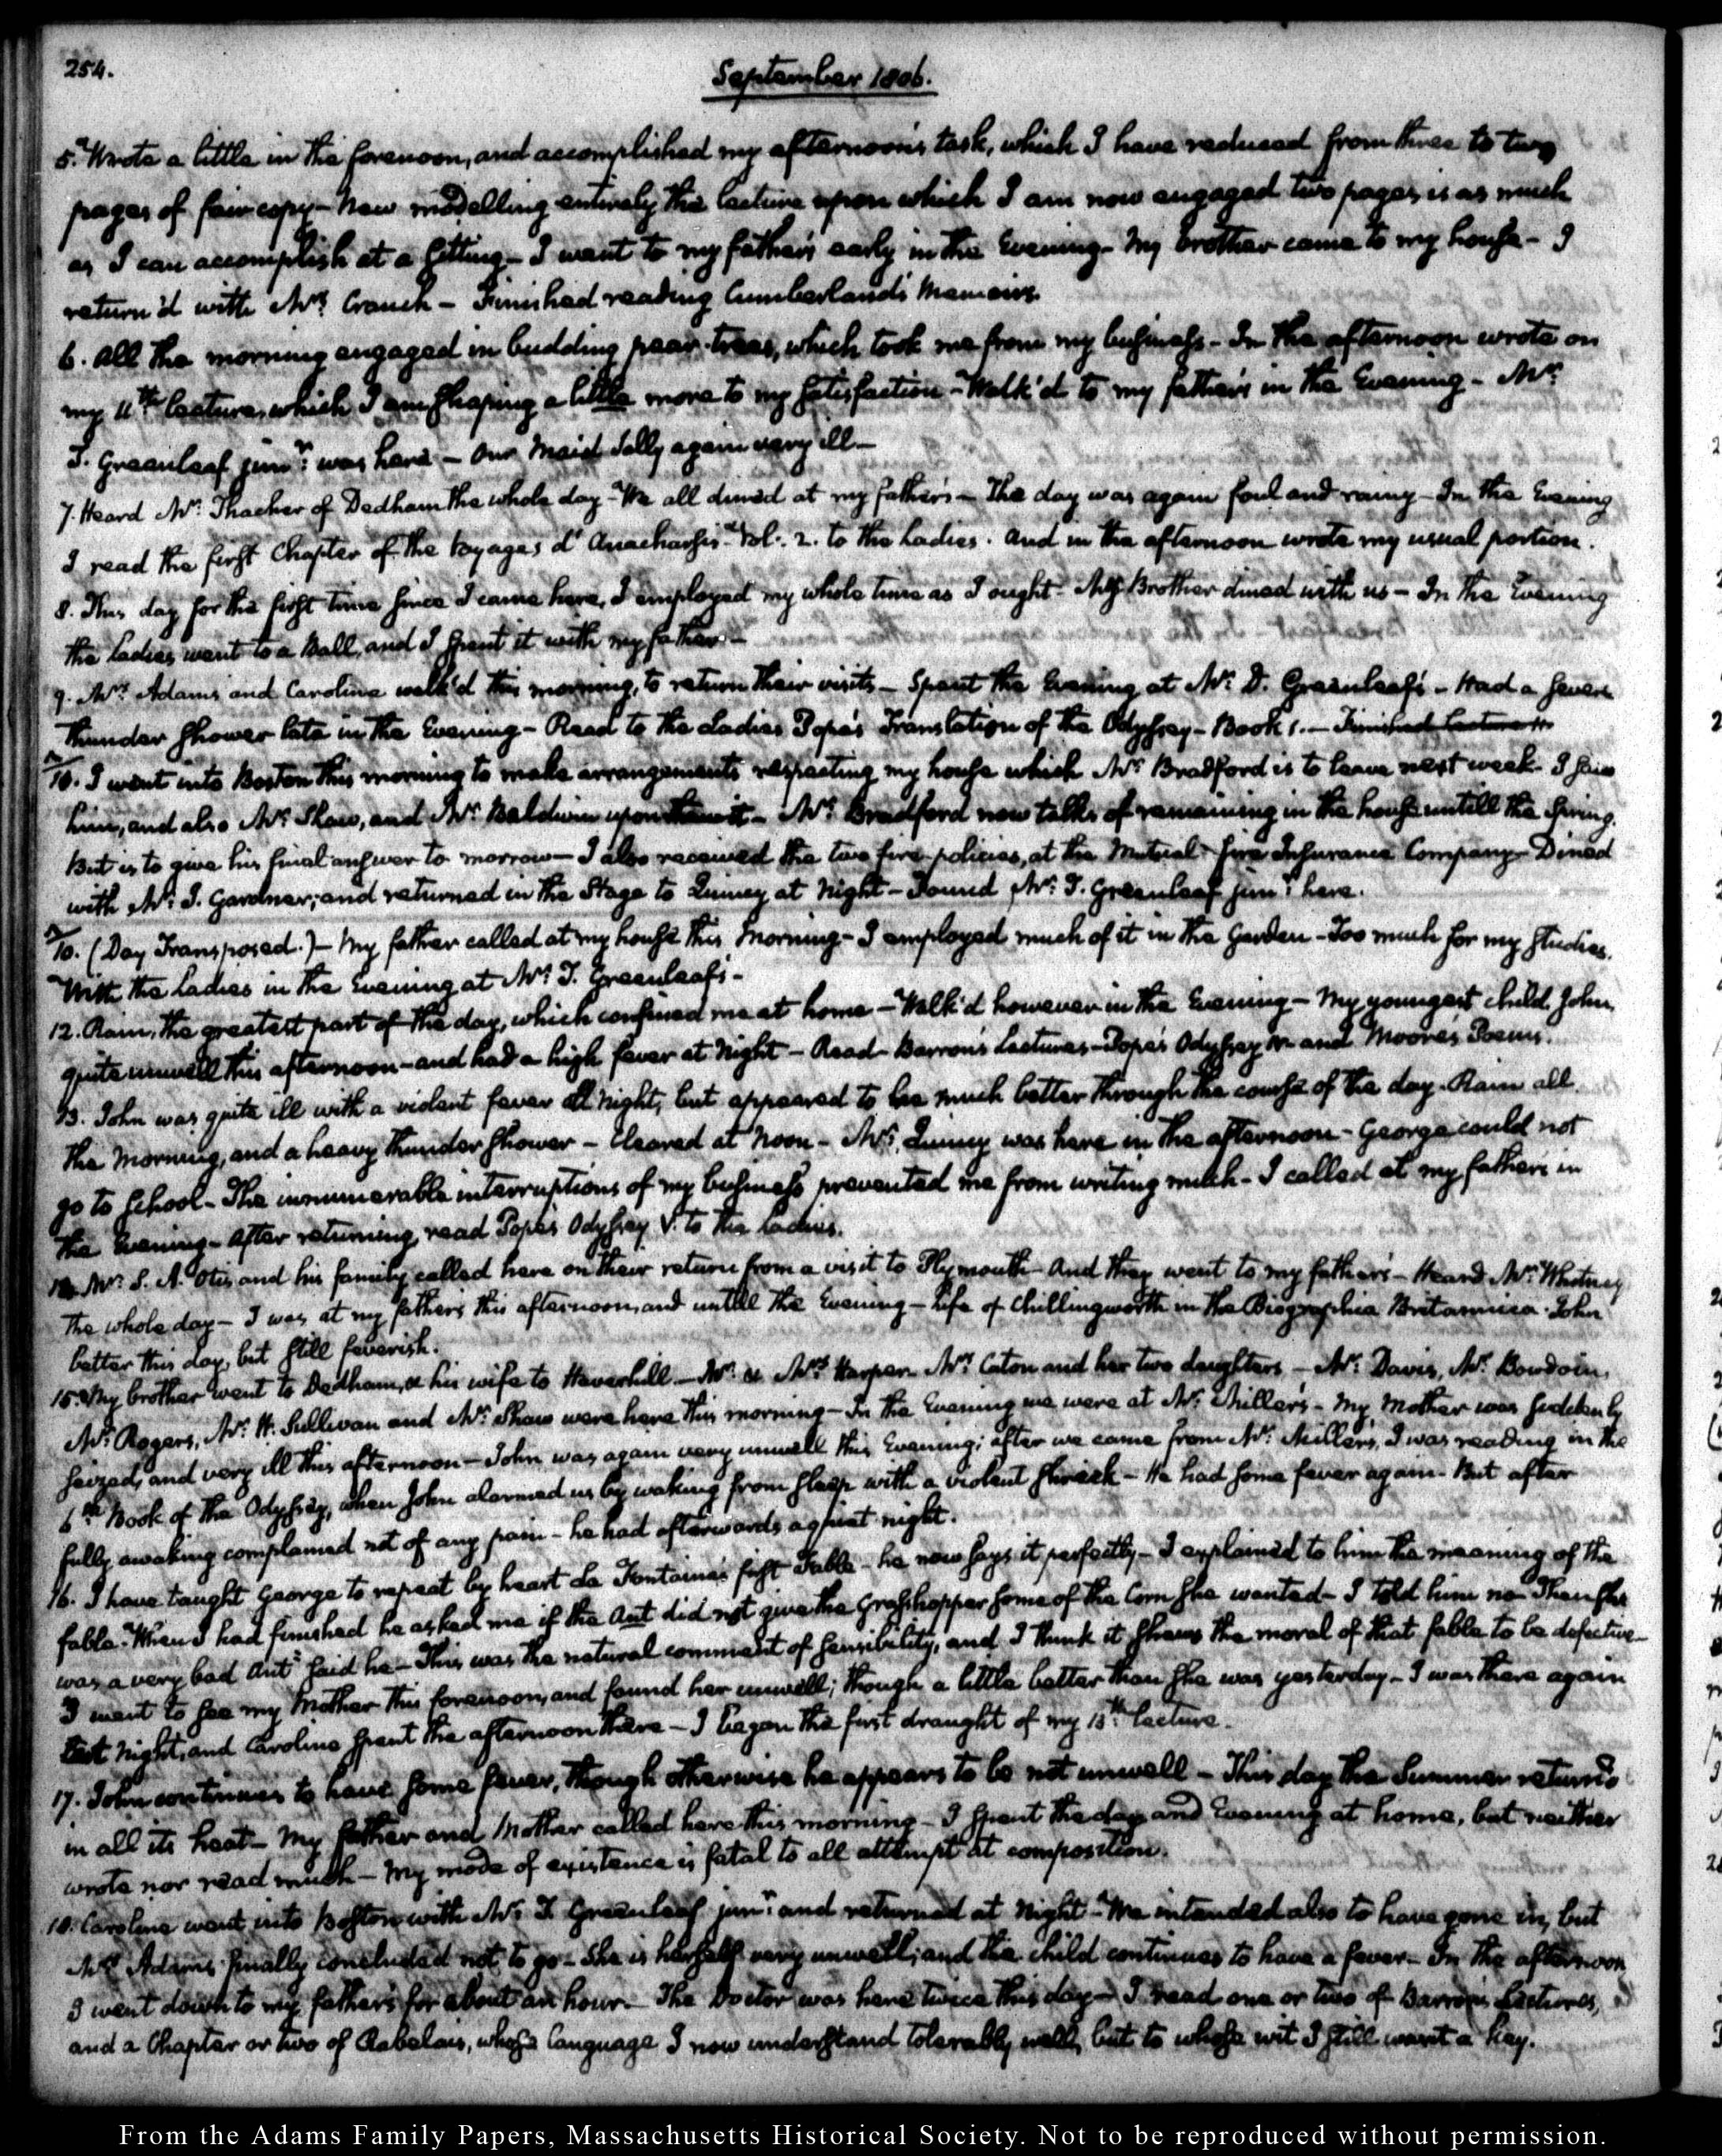 254.
September 1806.
5. Wrote a little in the forenoon, and accomplished my afternoon's task, which I have reduced from three to two
pages of fair copy — New modelling entirely the lecture upon which I am now engaged two pages is as much
as I can accomplish at a sitting — I went to my father's early in the Evening — My brother came to my house — I
return'd with Mrs. Cranch — Finished reading Cumberland's Memoirs.
6. All the morning engaged in budding pear-trees, which took me from my business — In the afternoon wrote on
my 11th. lecture, which I am shaping a little more to my satisfaction — Walk'd to my father's in the Evening — Mr.
T. Greenleaf junr. was here — Our Maid Sally again very ill —
7. Heard Mr. Thacher of Dedham the whole day — We all dined at my father's — The day was again foul and rainy — In the Evening
I read the first Chapter of the Voyages d'Anacharsis Vol. 2. to the Ladies. And in the afternoon wrote my usual portion.
8. This day for the first time since I came here, I employed my whole time as I ought — My Brother dined with us — In the Evening
the Ladies went to a Ball, and I spent it with my father. —
9. Mrs. Adams and Caroline walk'd this morning, to return their visits — Spent the Evening at Mr. D. Greenleaf's — Had a severe
thunder shower late in the Evening — Read to the Ladies Pope's Translation of the Odyssey — Book 1. — Finished Lecture 11
10. I went into Boston this morning to make arrangements respecting my house which Mr. Bradford is to leave next week. I saw
him, and also Mr. Shaw, and Mr. Baldwin upon — Mr. Bradford now talks of remaining in the house untill the Spring.
But is to give his final answer to morrow — I also received the two fire-policies, at the Mutual Fire Insurance Company — Dined
with Mr. J. Gardner; and returned in the Stage to Quincy at Night — Found Mr. T. Greenleaf junr. here.
10. (Day Transposed.) — My father called at my house this Morning — I employed much of it in the Garden — Too much for my studies.
With the Ladies in the Evening at Mr. T. Greenleaf's —
12. Rain, the greatest part of the day, which confined me at home — Walk'd however in the Evening — My youngest child, John,
quite unwell this afternoon — and had a high fever at Night — Read — Barron's Lectures — Pope's Odyssey and Moore's Poems.
13. John was quite ill with a violent fever all Night, but appeared to be much better through the course of the day. Rain all
the Morning, and a heavy thunder shower — Cleared at Noon — Mrs. Quincy was here in the afternoon — George could not
go to school — The innumerable interruptions of my business prevented me from writing much — I called at my father's in
the Evening — After returning, read Pope's Odyssey V. to the Ladies.
14. Mr. S. A. Otis and his family called here on their return from a visit to Plymouth — And they went to my father's — Heard Mr. Whitney
the whole day — I was at my father's this afternoon, and untill the Evening — Life of Chillingworth in the Biographia Britannica. John
better this day, but still feverish.
15. My brother went to Dedham, & his wife to Haverhill — Mr. & Mrs. Harper Mrs. Caton and her two daughters — Mr. Davis, Mr. Bowdoin,
Mr. Rogers, Mr. W. Sullivan and Mr. Shaw were here this morning — In the Evening we were at Mr. Miller's — My Mother was suddenly
seized, and very ill this afternoon — John was again very unwell this Evening; after we came from Mr. Miller's, I was reading in the
6th. Book of the Odyssey, when John alarmed us by waking from sleep with a violent shriek — He had some fever again — But after
fully awaking complained not of any pain — he had afterwards a quiet night.
16. I have taught George to repeat by heart La Fontaine's first Fable — he now says it perfectly — I explained to him the meaning of the
fable. When I had finished he asked me if the Ant did not give the Grasshopper some of the Corn she wanted — I told him no — Then she
was a very bad Ant said he — This was the natural comment of sensibility, and I think it shews the moral of that fable to be defective —
I went to see my Mother this forenoon, and found her unwell; though a little better than she was yesterday — I was there again
last Night, and Caroline spent the afternoon there — I began the first draught of my 13th. lecture.
17. John continues to have some fever, though otherwise he appears to be not unwell — This day the Summer return'd
in all its heat — My father and Mother called here this morning — I spent the day and Evening at home, but neither
wrote nor read much — My mode of existence is fatal to all attempt at composition.
18. Caroline went into Boston with Mr. T. Greenleaf junr. and returned at Night — We intended also to have gone in, but
Mrs. Adams finally concluded not to go — She is herself very unwell; and the child continues to have a fever — In the afternoon
I went down to my father's for about an hour — The Doctor was here twice this day — I read one or two of Barron's Lectures,
and a Chapter or two of Rabelais, whose language I now understand tolerably well, but to whose wit I still want a key.
From the Adams Family Papers, Massachusetts Historical Society. Not to be reproduced without permission.